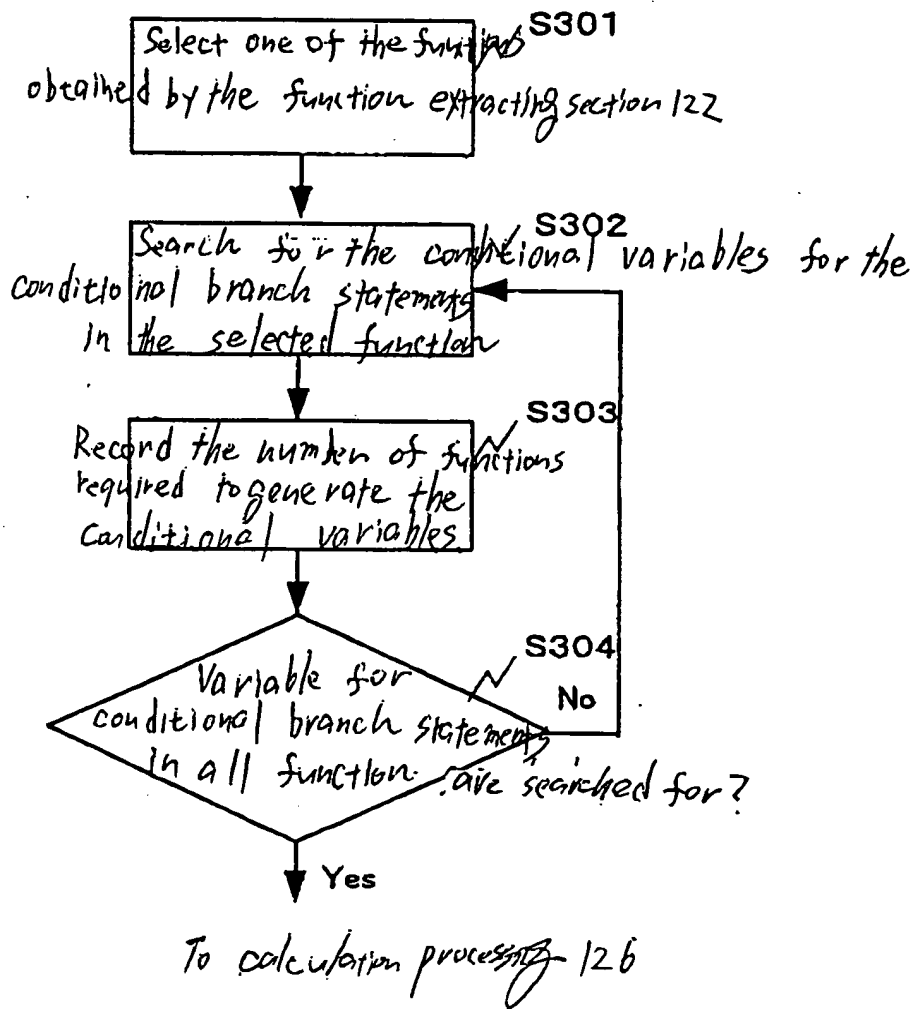 S301
Select one of the functions
obtained by the function extracting section 122
S302
Search for the conditional variables for the
conditional branch statements
in the selected function
S303
Record the number of functions
required to generate the
conditional variables
S304
Variable for
conditional branch statements
in all function are searched for?
No
Yes
To calculation processing 126